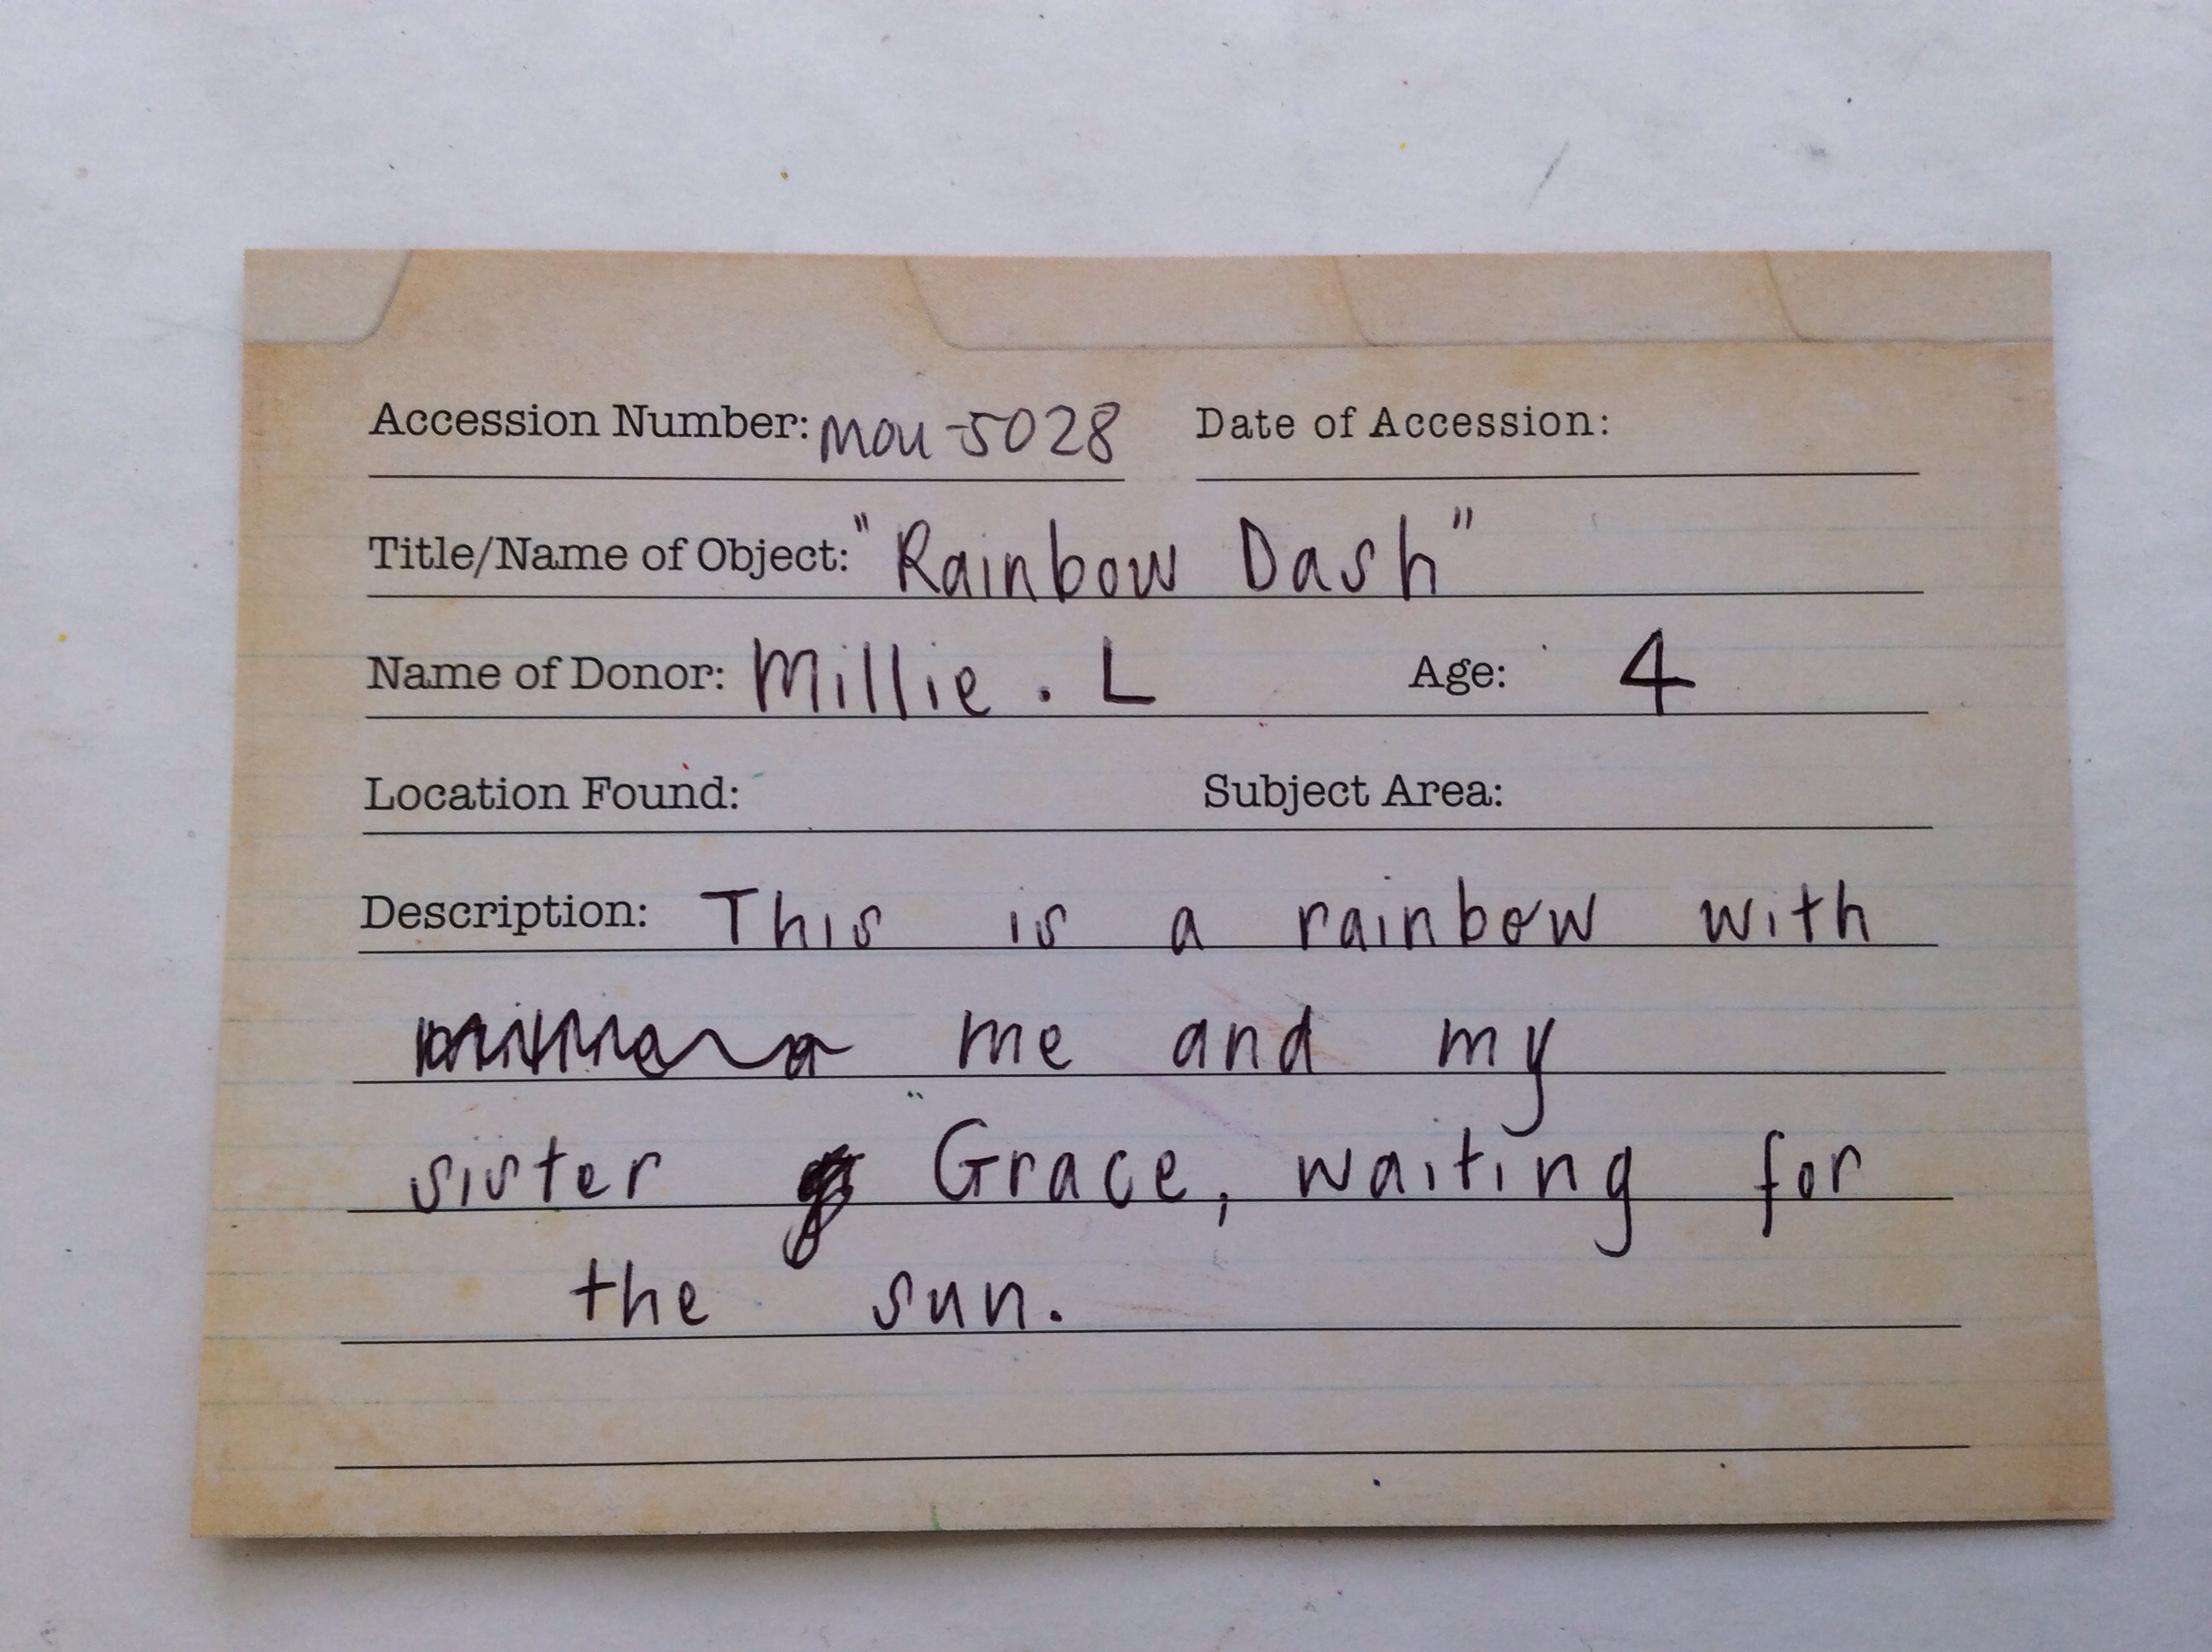 Accession Number: mou-5028 Date of Accession:
Title/Name of Object: "Rainbow Dash"
Name of Donor: Millie. L Age: 4
Location Found: Subject Area:
Description: This is a rainbow with
me and my
sister Grace, waiting for
the sun.